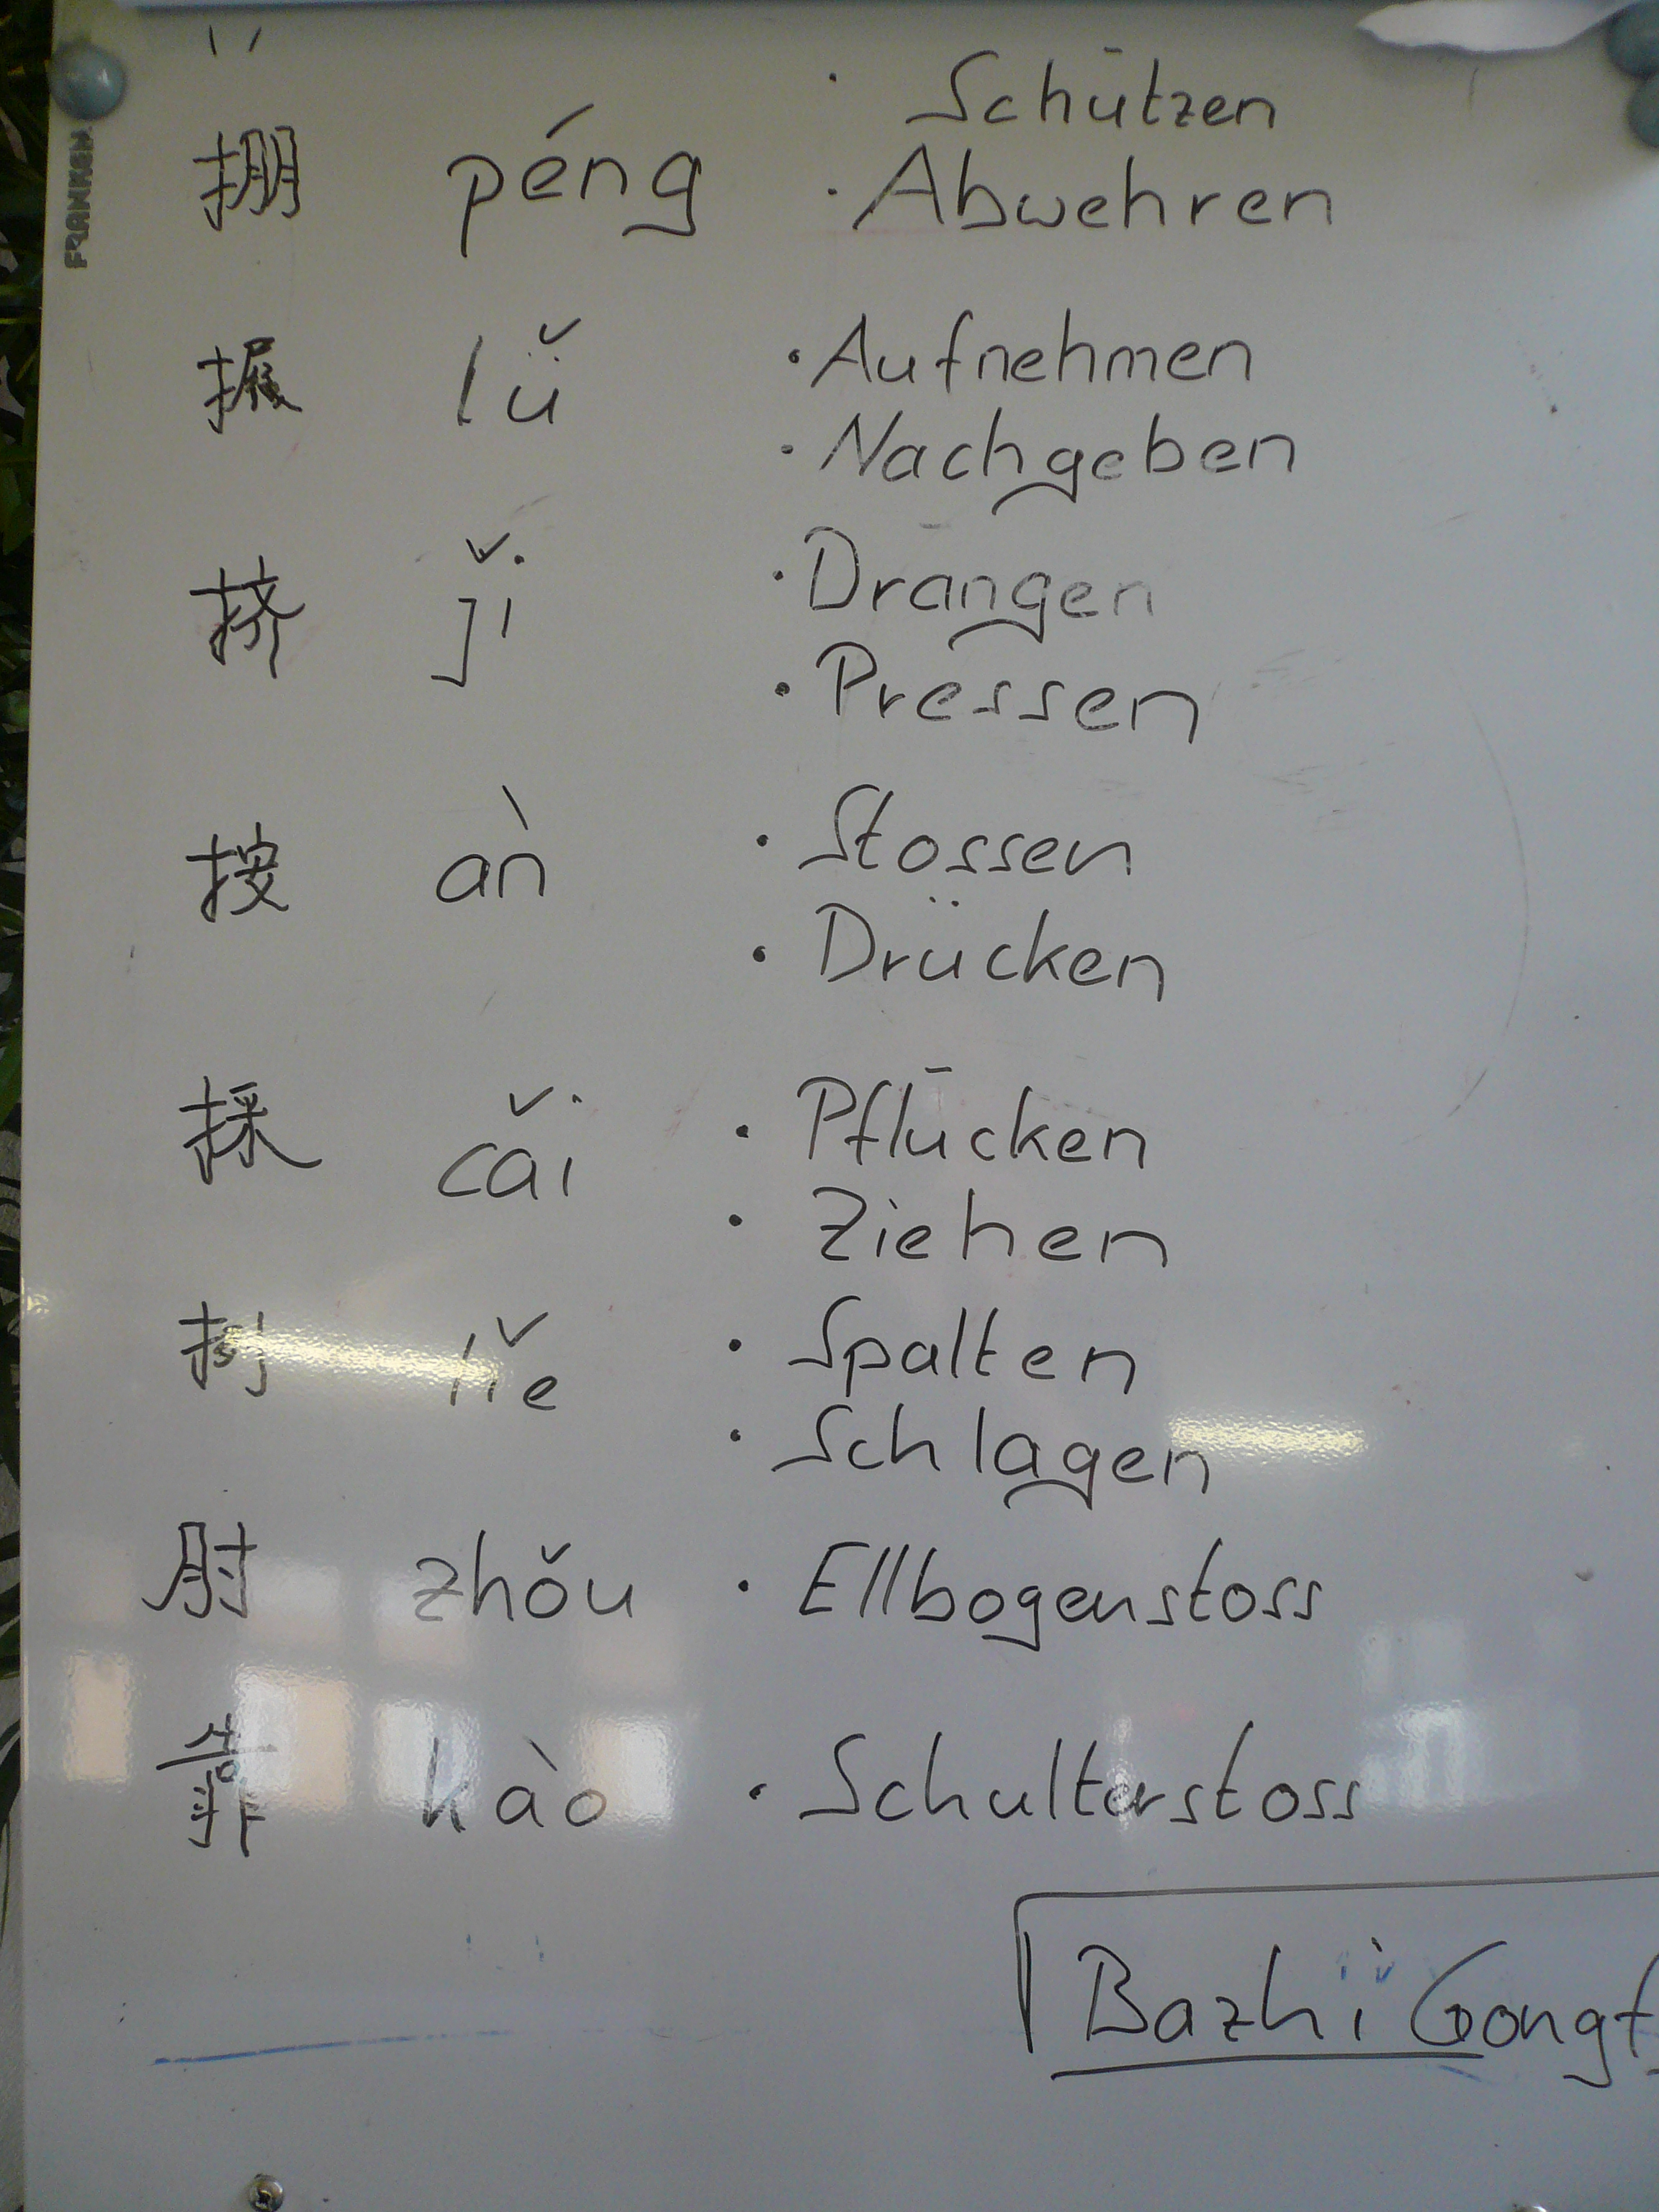 掤 péng · Schützen
· Abwehren
FRANKEN
㨰 lǚ · Aufnehmen
· Nachgeben
挤 jǐ · Drängen
· Pressen
按 àn · Stossen
· Drücken
採 cǎi · Pflücken
· Ziehen
挒 liě · Spalten
· Schlagen
肘 zhǒu · Ellbogenstoss
靠 kào · Schulterstoss
Bazhi Gongf